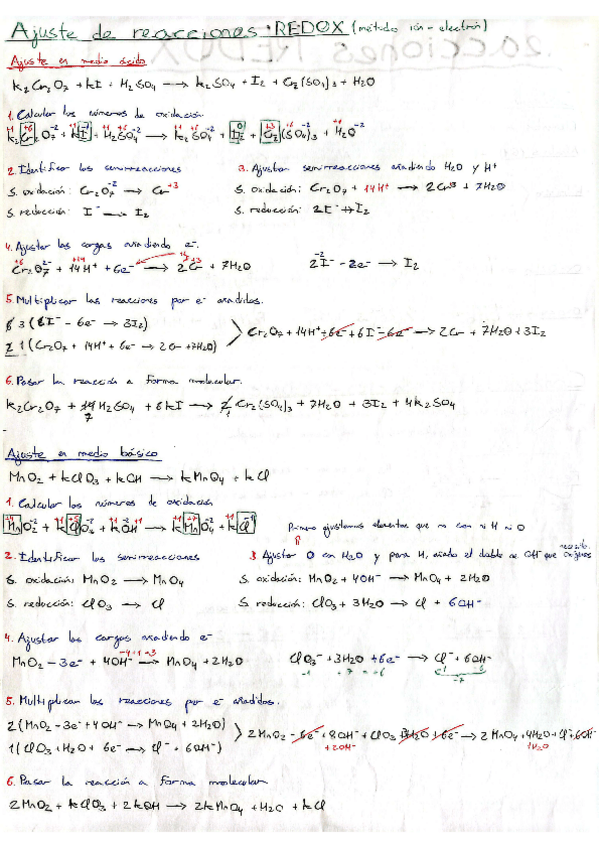 Ajuste de reacciones: REDOX (método ión-electrón)
Ajuste en medio ácido
K₂Cr₂O₇ + KI + H₂SO₄ → K₂SO₄ + I₂ + Cr₂(SO₄)₃ + H₂O
1. Calcular los números de oxidación
K₂Cr₂O₇ + KI + H₂SO₄ → K₂SO₄ + I₂ + Cr₂(SO₄)₃ + H₂O
2. Identificar las semirreacciones
S. oxidación: Cr₂O₇⁻² → Cr⁺³
S. reducción: I⁻ → I₂
3. Ajustar semirreacciones añadiendo H₂O y H⁺
S. oxidación: Cr₂O₇ + 14H⁺ → 2Cr³ + 7H₂O
S. reducción: 2I⁻ → I₂
4. Ajustar las cargas añadiendo e⁻.
Cr₂O₇²⁻ + 14H⁺ + 6e⁻ → 2Cr + 7H₂O
2I⁻ - 2e⁻ → I₂
5. Multiplicar las reacciones por e⁻ añadidos.
3(I⁻ - 6e⁻ → 3I₂)
1(Cr₂O₇ + 14H⁺ + 6e⁻ → 2Cr + 7H₂O)
Cr₂O₇ + 14H⁺ + 6e⁻ + 6I⁻ - 6e⁻ → 2Cr + 7H₂O + 3I₂
6. Pasar la reacción a forma molecular.
K₂Cr₂O₇ + 7 H₂SO₄ + 6KI → Cr₂(SO₄)₃ + 7H₂O + 3I₂ + 4K₂SO₄
Ajuste en medio básico
MnO₂ + KClO₃ + KOH → KMnO₄ + KCl
1. Calcular los números de oxidación
MnO₂ + KClO₃ + KOH → KMnO₄ + KCl
Primero ajustamos elementos que no son ni H ni O
2. Identificar las semirreacciones
S. oxidación: MnO₂ → MnO₄
S. reducción: ClO₃ → Cl
3 Ajustar O con H₂O y para H, añado el doble de OH⁻ que oxígenos necesito.
S. oxidación: MnO₂ + 4OH⁻ → MnO₄ + 2H₂O
S. reducción: ClO₃ + 3H₂O → Cl + 6OH⁻
4. Ajustar las cargas añadiendo e⁻
-4+1=-3
MnO₂ - 3e⁻ + 4OH⁻ → MnO₄ + 2H₂O
ClO₃⁻ + 3H₂O + 6e⁻ → Cl⁻ + 6OH⁻
5. Multiplicar las reacciones por e⁻ añadidos.
2(MnO₂ - 3e⁻ + 4OH⁻ → MnO₄ + 2H₂O)
1(ClO₃ + H₂O + 6e⁻ → Cl⁻ + 6OH⁻)
2MnO₂ - 6e⁻ + 8OH⁻ + ClO₃ + 3H₂O + 6e⁻ → 2MnO₄ + 4H₂O + Cl⁻ + 6OH⁻
+2OH⁻
1H₂O
6. Pasar la reacción a forma molecular
2MnO₂ + KClO₃ + 2KOH → 2KMnO₄ + H₂O + KCl